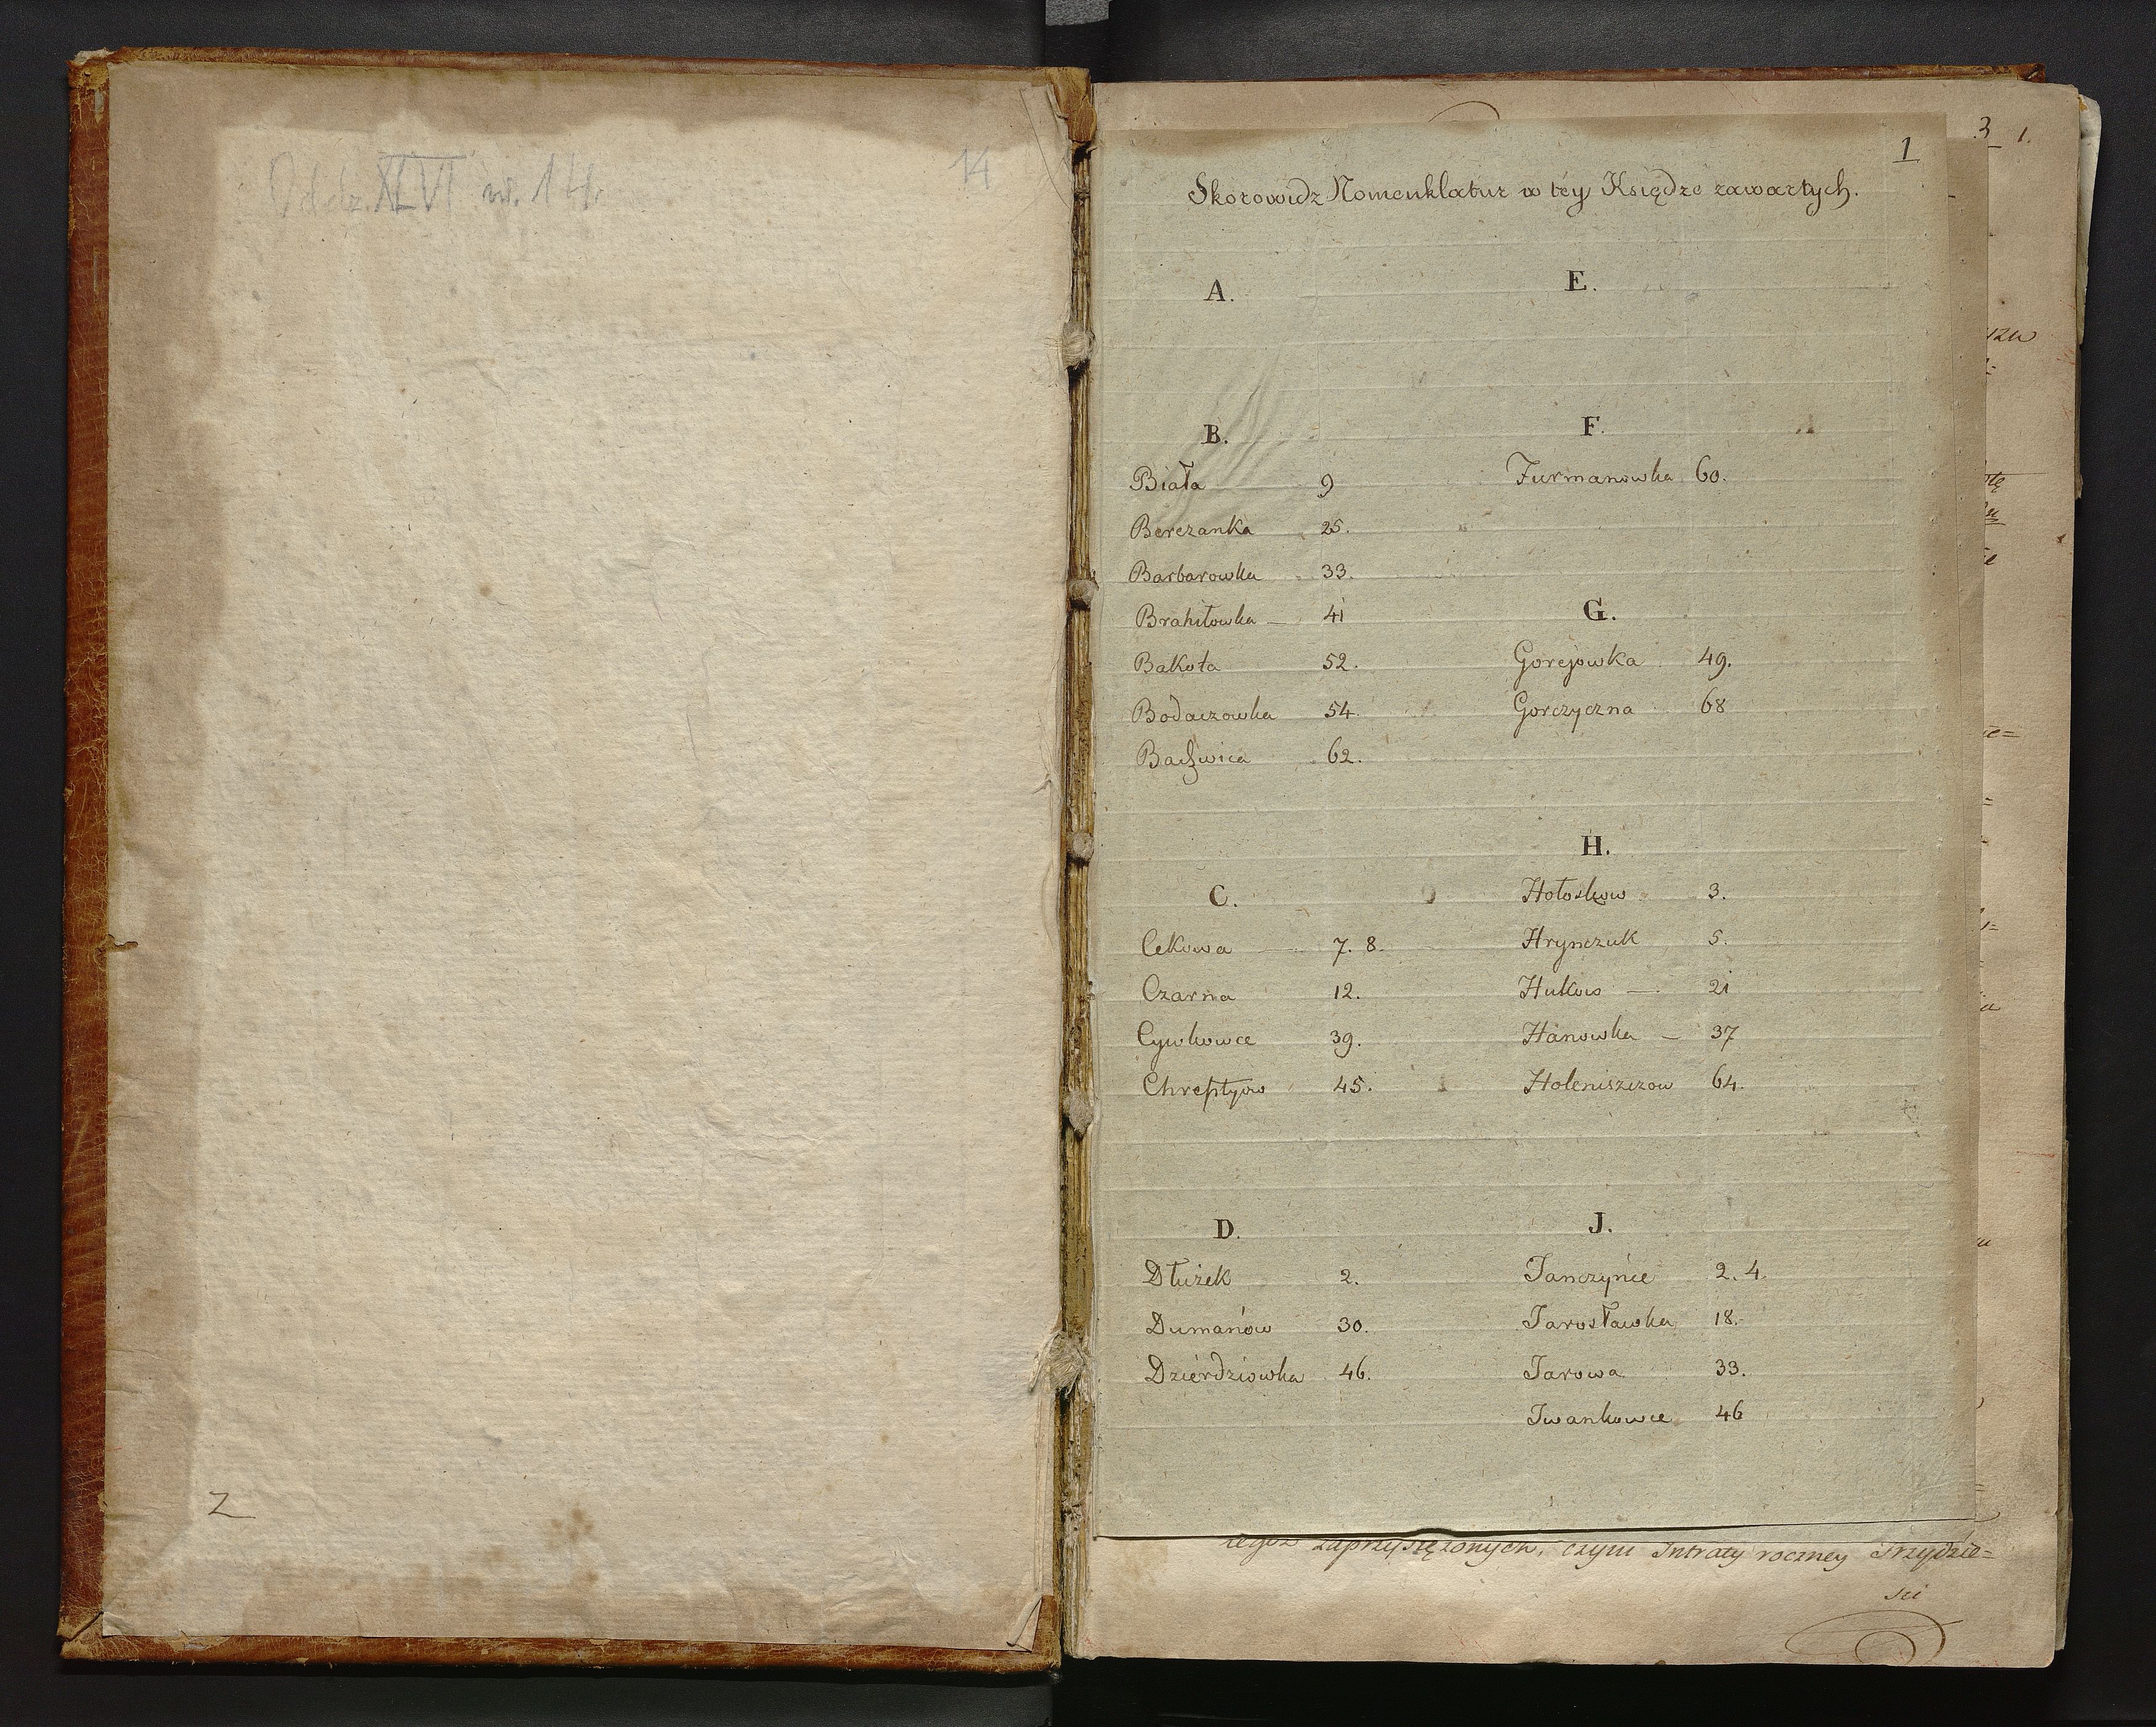 Oddz. XLVI nr. 14.
14
Z
3 1.
1
Skorowidz Nomenklatur w téy Księdze zawartych.
A.
B.
Biała 9
Berezanka 25.
Barbarowka 33.
Brahiłowka — 41
Bakota 52.
Bodaczowka 54.
62.
C.
Cekowa 7. 8.
Czarna 12.
Cywkowce 39.
Chreptyow 45.
D.
Dłużek 2.
Dumanów 30.
Dzierdziowka 46.
E.
F.
Furmanowka 60.
G.
Gorejowka 49.
Gorczyczna 68
H.
Hołoskow 3.
Hrynczuk 5.
Hukow — 21
Hanowka — 37
Holeniszczow 64.
J.
Janczyńce 2. 4.
Jarosławka 18.
Jarowa 33.
Iwankowce 46
zaprzysiężonych, czyni Intraty roczney Trzydzie=
sci